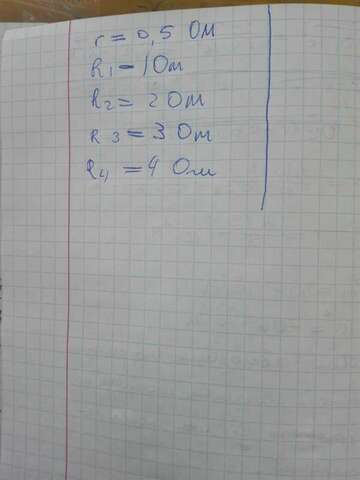 r = 0,5 Ом
R1 = 1 Ом
R2 = 2 Ом
R3 = 3 Ом
R4 = 4 Ом